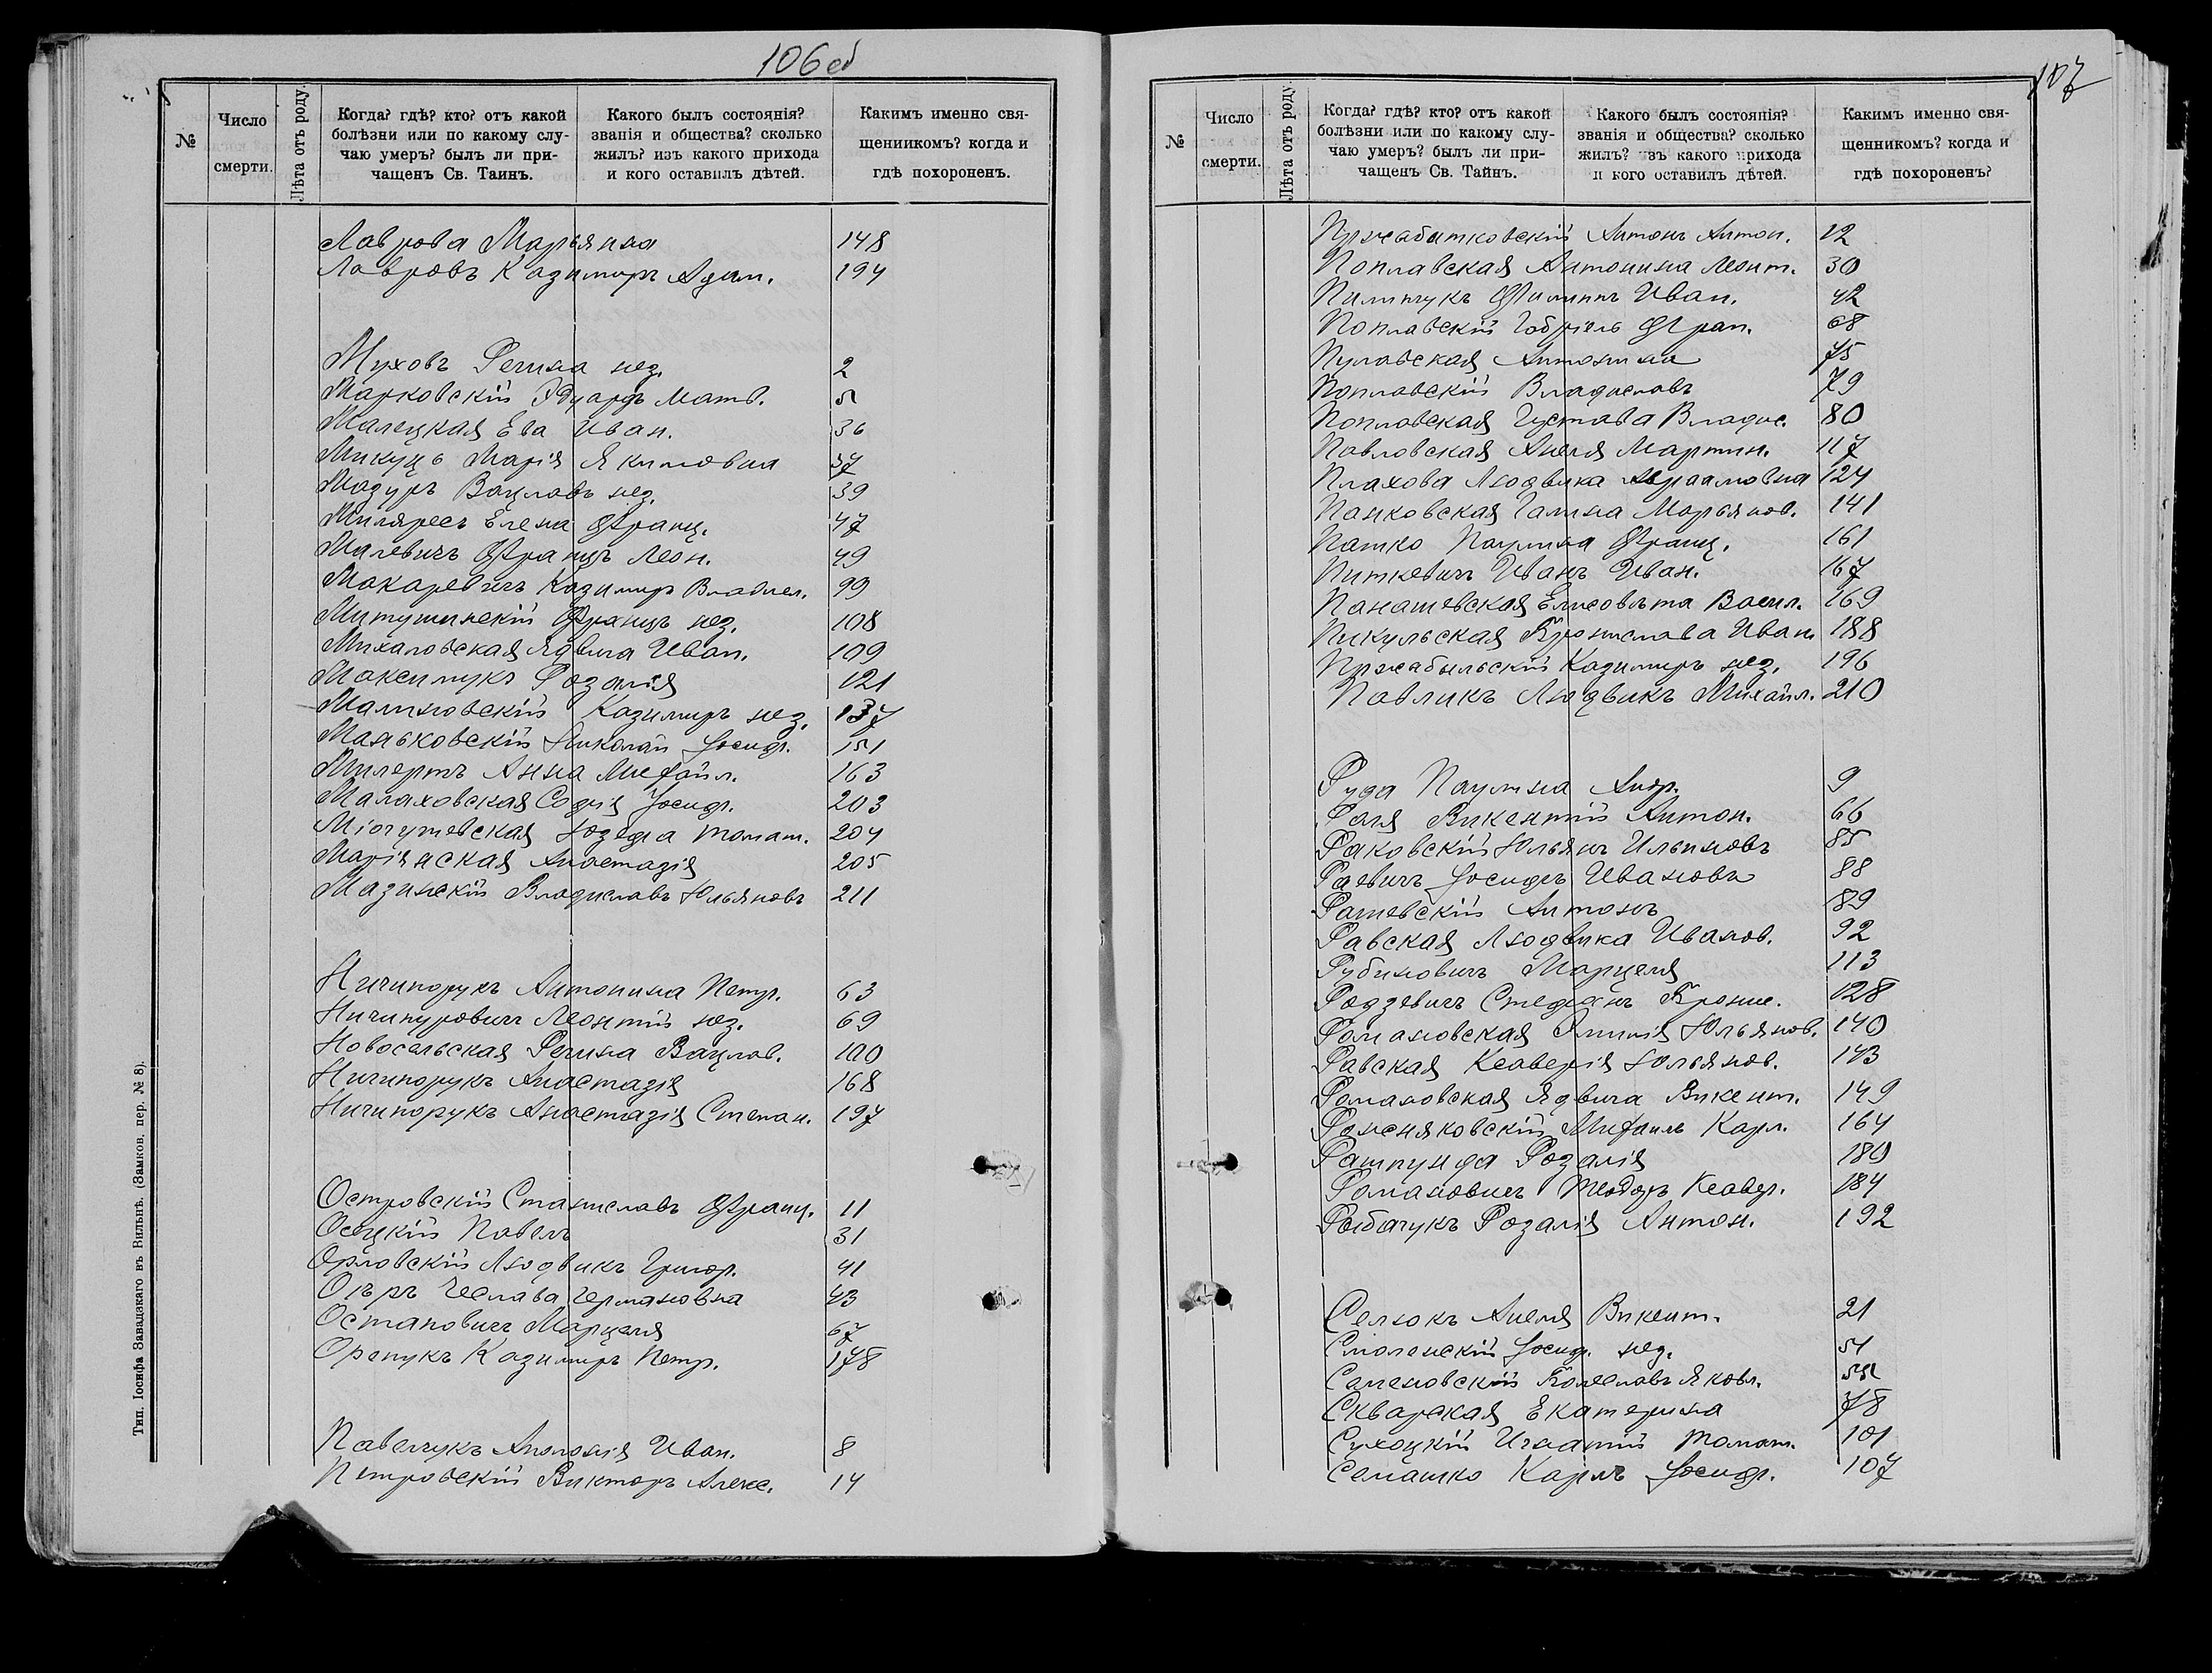 106об
№
Число смерти.
Лѣта отъ роду.
Когда? гдѣ? кто? отъ какой
болѣзни или по какому слу-
чаю умеръ? былъ ли при-
чащенъ Св. Таинъ.
Какого былъ состоянія?
званія и общества? сколько
жилъ? изъ какого прихода
и кого оставилъ дѣтей.
Какимъ именно свя-
щенникомъ? когда и
гдѣ похороненъ.
Лаврова Марьянна 148
Лавровъ Казимиръ Адам. 194
Муховъ Регина нез. 2
Марковскій Эдуардъ Матв. 5
Малецкая Ева Иван. 36
Микуць Марія Якимовна 37
Мазуръ Вацлавъ нез. 39
Елена Франц. 47
Милевичъ Францъ Леон. 49
Макаревичъ Казимиръ 99
Митушинскій Францъ нез. 108
Михаловская Ядвига Иван. 109
Максимукъ Розалія 121
Малиновскій Казимиръ нез. 137
Маньковскій Николай Іосиф. 151
Милертъ Анна Михайл. 163
Малаховская Софія Іосиф. 203
Юзефа Томаш. 204
Анастазія 205
Мазинскій Владиславъ Юльяновъ 211
Ничипорукъ Антонина Петр. 63
Ничипуровичъ Леонтій нез. 69
Новосельская Регина Вацлав. 100
Ничипорукъ Анастазія 168
Ничипорукъ Анастазія Степан. 197
Островскій Станиславъ Франц. 11
Осецкій Павелъ 31
Орловскій Людвикъ Григор. 41
Чеслава Германовна 43
Остаповичъ Марцеля 67
Орепукъ Казимиръ Петр. 178
Павелчукъ Аполонія Иван. 8
Петровскій Викторъ Алекс. 14
Тип. Іосифа Завадзкаго въ Вильнѣ. (Замков. пер. № 8).
107
№
Число смерти.
Лѣта отъ роду.
Когда? гдѣ? кто? отъ какой
болѣзни или по какому слу-
чаю умеръ? былъ ли при-
чащенъ Св. Тайнъ.
Какого былъ состоянія?
званія и общества? сколько
жилъ? изъ какого прихода
и кого оставилъ дѣтей.
Какимъ именно свя-
щенникомъ? когда и
гдѣ похороненъ?
Антонъ Антон. 12
Поплавская Антонина Леонт. 30
Пилипчукъ Филиппъ Иван. 42
Поплавскій Габріель Фран. 68
Пулавская Антонина 75
Поплавскій Владиславъ 79
Поплавская Густава Владис. 80
Павловская Анеля Мартин. 117
Плахова Людвика Авраамовна 124
Панковская Галина Марьянов. 141
Патко Паулина Франц. 161
Питкевичъ Иванъ Иван. 167
Панашевская Елисовѣта Васил. 169
Пикульская Бронислава Иван. 188
Пржабыльскій Казимиръ нез. 196
Павликъ Людвикъ Михайл. 210
Руда Паулина Андр. 9
Раля Викентій Антон. 66
Раковскій Юльянъ Ильиновъ 85
Раевичъ Іосифъ Ивановъ 88
Рашевскій Антонъ 89
Равская Людвика Иванов. 92
Рубиновичъ Марцеля 113
Родзевичъ Стефанъ Брони. 128
Романовская Эмилія Юльянов. 140
Равская Ксаверія Юльянов. 143
Романовская Ядвига Викент. 149
Рожсняковскій Михаилъ Карл. 164
Рашпунда Розалія 180
Романовичъ Теодоръ Ксавер. 184
Рыбачукъ Розалія Антон. 192
Селюкъ Анеля Викент. 21
Смоленскій Іосиф. нез. 51
Семеновскій Болеславъ Яковл. 55
Скварская Екатерина 78
Сухоцкій Игнатій Томаш. 101
Семашко Карлъ Іосиф. 107